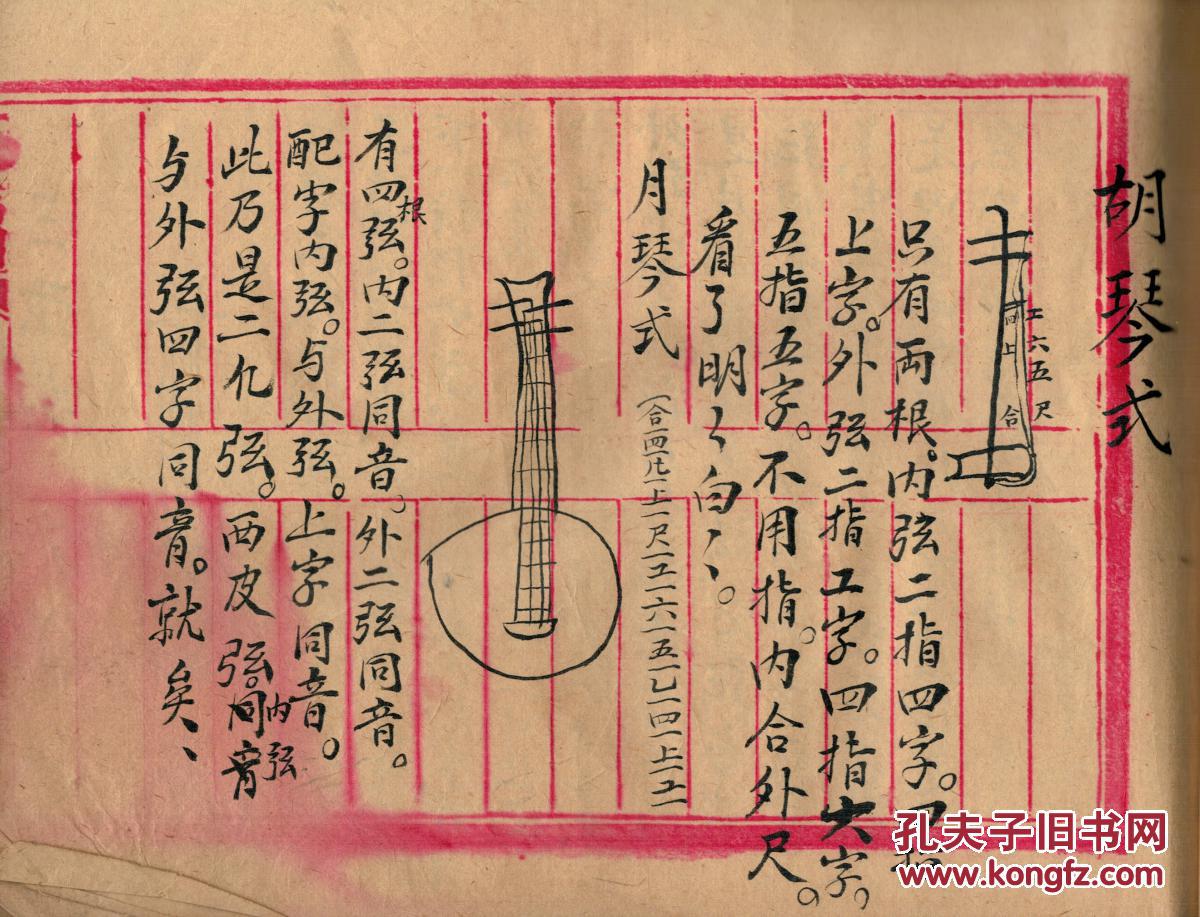 胡琴式
工六五尺
四上合
只有両根。内弦二指四字。四指
上字。外弦二指工字。四指六字。
五指五字。不用指。内合外尺。
看了明〻白丶丶。
月琴式
(合一四一 一上一尺一工一六一五一乙一四一上一工一
有四根弦。内二弦同音。外二弦同音。
配字内弦。与外弦。上字同音。
此乃是二凢弦。西皮弦。内弦同音
与外弦四字同音。就矣丶丶
孔夫子旧书网
www.kongfz.com